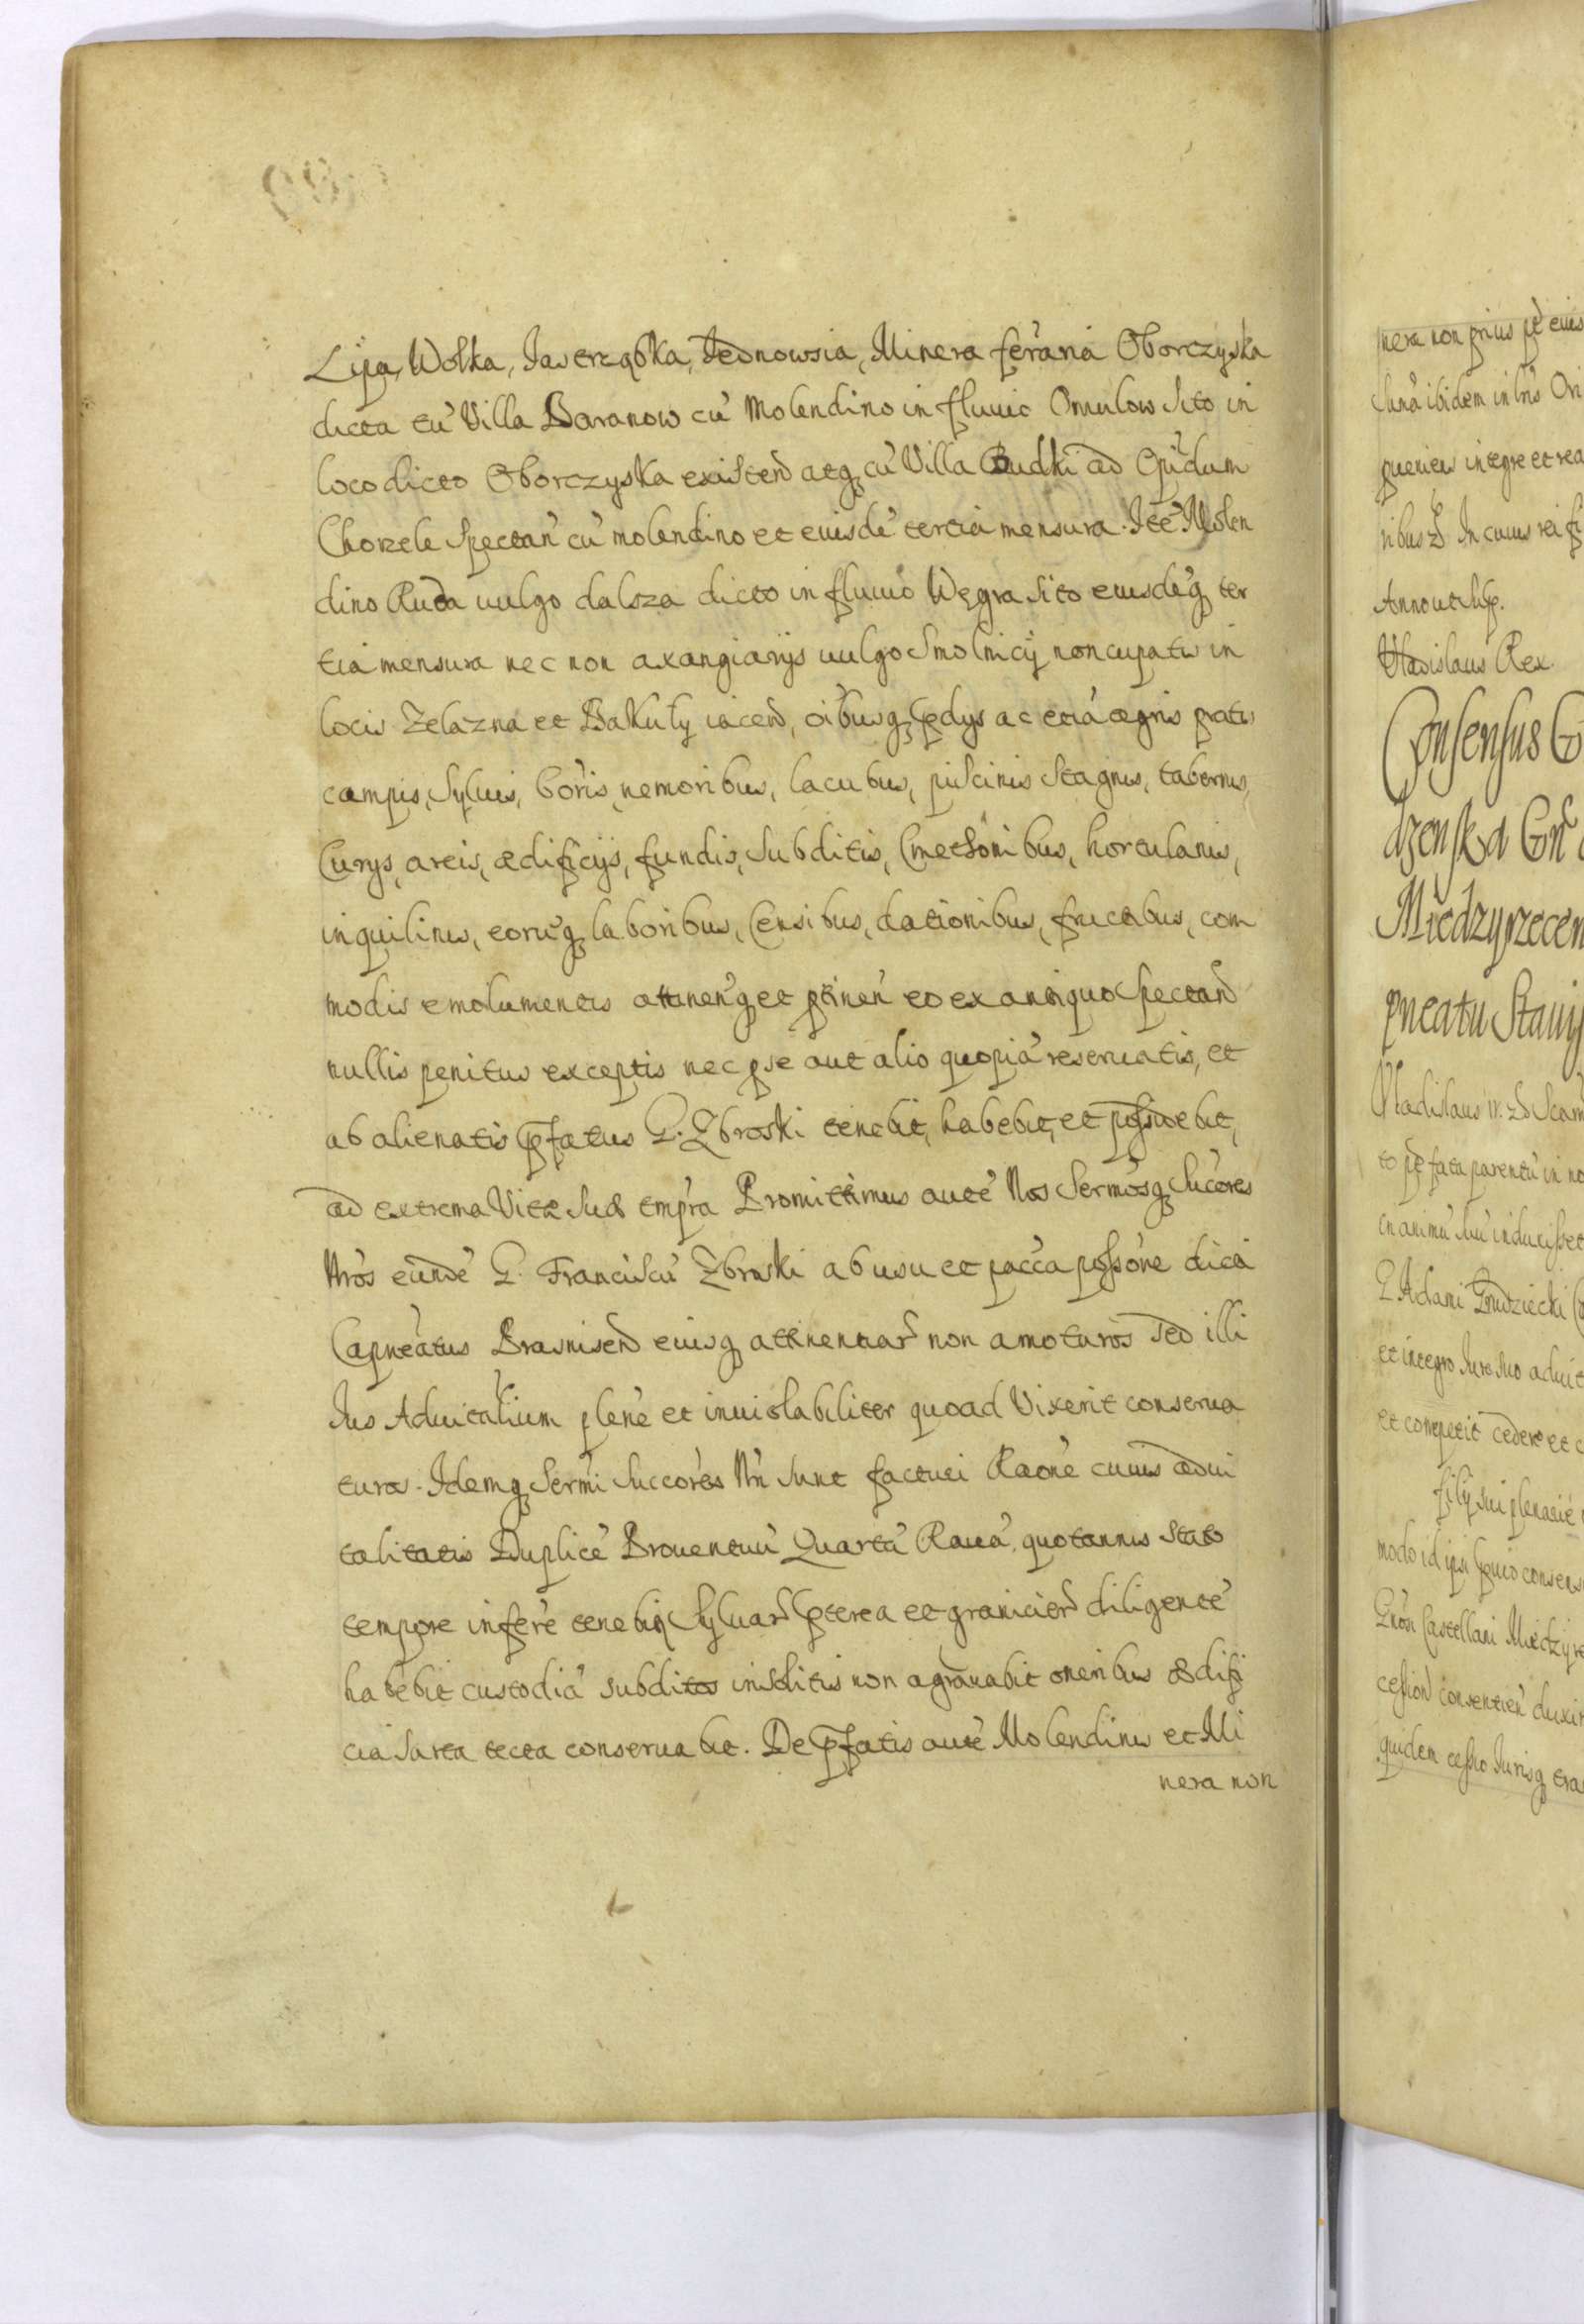 Lipa, Wolka, Jawerząbka, Jednowsia, Minera ferraria Oborczyska
dicta cũ Villa Baranow cũ Molendino in fluuio Omulow sito in
loco dicto Oborczyska existen̄ atq, cũ Villa Budki ad Opidum
Chorzele spectan̄ cũ molendino et euisdẽ tertia mensura. Itẽ Molen
dino Ruda uulgo dalsza dicto in fluuio Węgra sito eiusdẽq ter
tia mensura nec non axangiarijs uulgo Smolnicÿ noncupatis in
locis Zelazna et Bakuły iacen̄, oĩbusq, p̃dijs ac etiã agris pratis
campis, Syluis, boris, nemoribus, lacubus, piscinis stagnis, tabernis,
Curijs, areis, ædificijs, fundis, subditis, Cmethonibus, hortulanis,
inquilinis, eorũq, laboribus, Censibus, dationibus, fructibus, com
modis emolumentis attinen̄q, et p̱tinen̄ eo ex antiquo spectan̄
nullis penitus exceptis nec p se aut alio quopiã reseruatis, et
ab alienatis p̃fatus G. Zbroski tenebit, habebit, et possidebit,
ad extrema Vitæ suæ temp̃ra Promittimus autẽ Nos Sermosq, Succores
Nr̃os eundẽ G. Franciscũ Zbroski ab usu et pacca possõne dicti
Capneatus Brasnisen̄ eiusq, attinentiar̃ non amoturos sed illi
Jus Aduitalium plenẽ et inuiolabiliter quoad Vixerit conserua
turos. Idemq, Sermi Succores Nr̃i sunt facturi Raõne cuius adui
talitatis Duplicẽ Prouentuũ Quartã Rauã, quotannis stato
tempore inferre tenebiť Syluar̃ p̃terea et granicier̃ diligentẽ
habebit custodiã subditos insolitis non agrauabit oneribus ædifi
cia sarta tecta conseruabit. De p̃fatis autẽ Molendinis et Mi
nera non
nera non prius
sunã ibidem in lr̃is Ori
integre et rea
ribus In cuius rei fi
Anno ut sup.
Vladislaus Rex
Consensus G
Miedzyrzecen
pneatu Staw
Vladislaus IV.
to p̃fatu parentũ in no
in animũ suũ induxisset
G Adami Grudziecki
et integro Jure suo aduit
et competit cedere et c
filij sui plenariẽ
modo id ipsi consens
Castellani Miedzyrz
consentien̄ duxim
quidem cessio Jurisq, tra